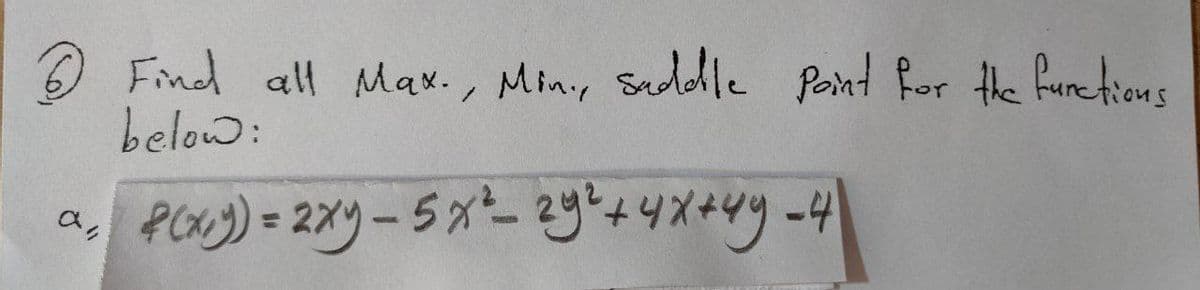 ⑥ Find all Max., Min., saddle Point for the functions
below:
a, f(x,y) = 2xy - 5x² - 2y² + 4x + 4y - 4